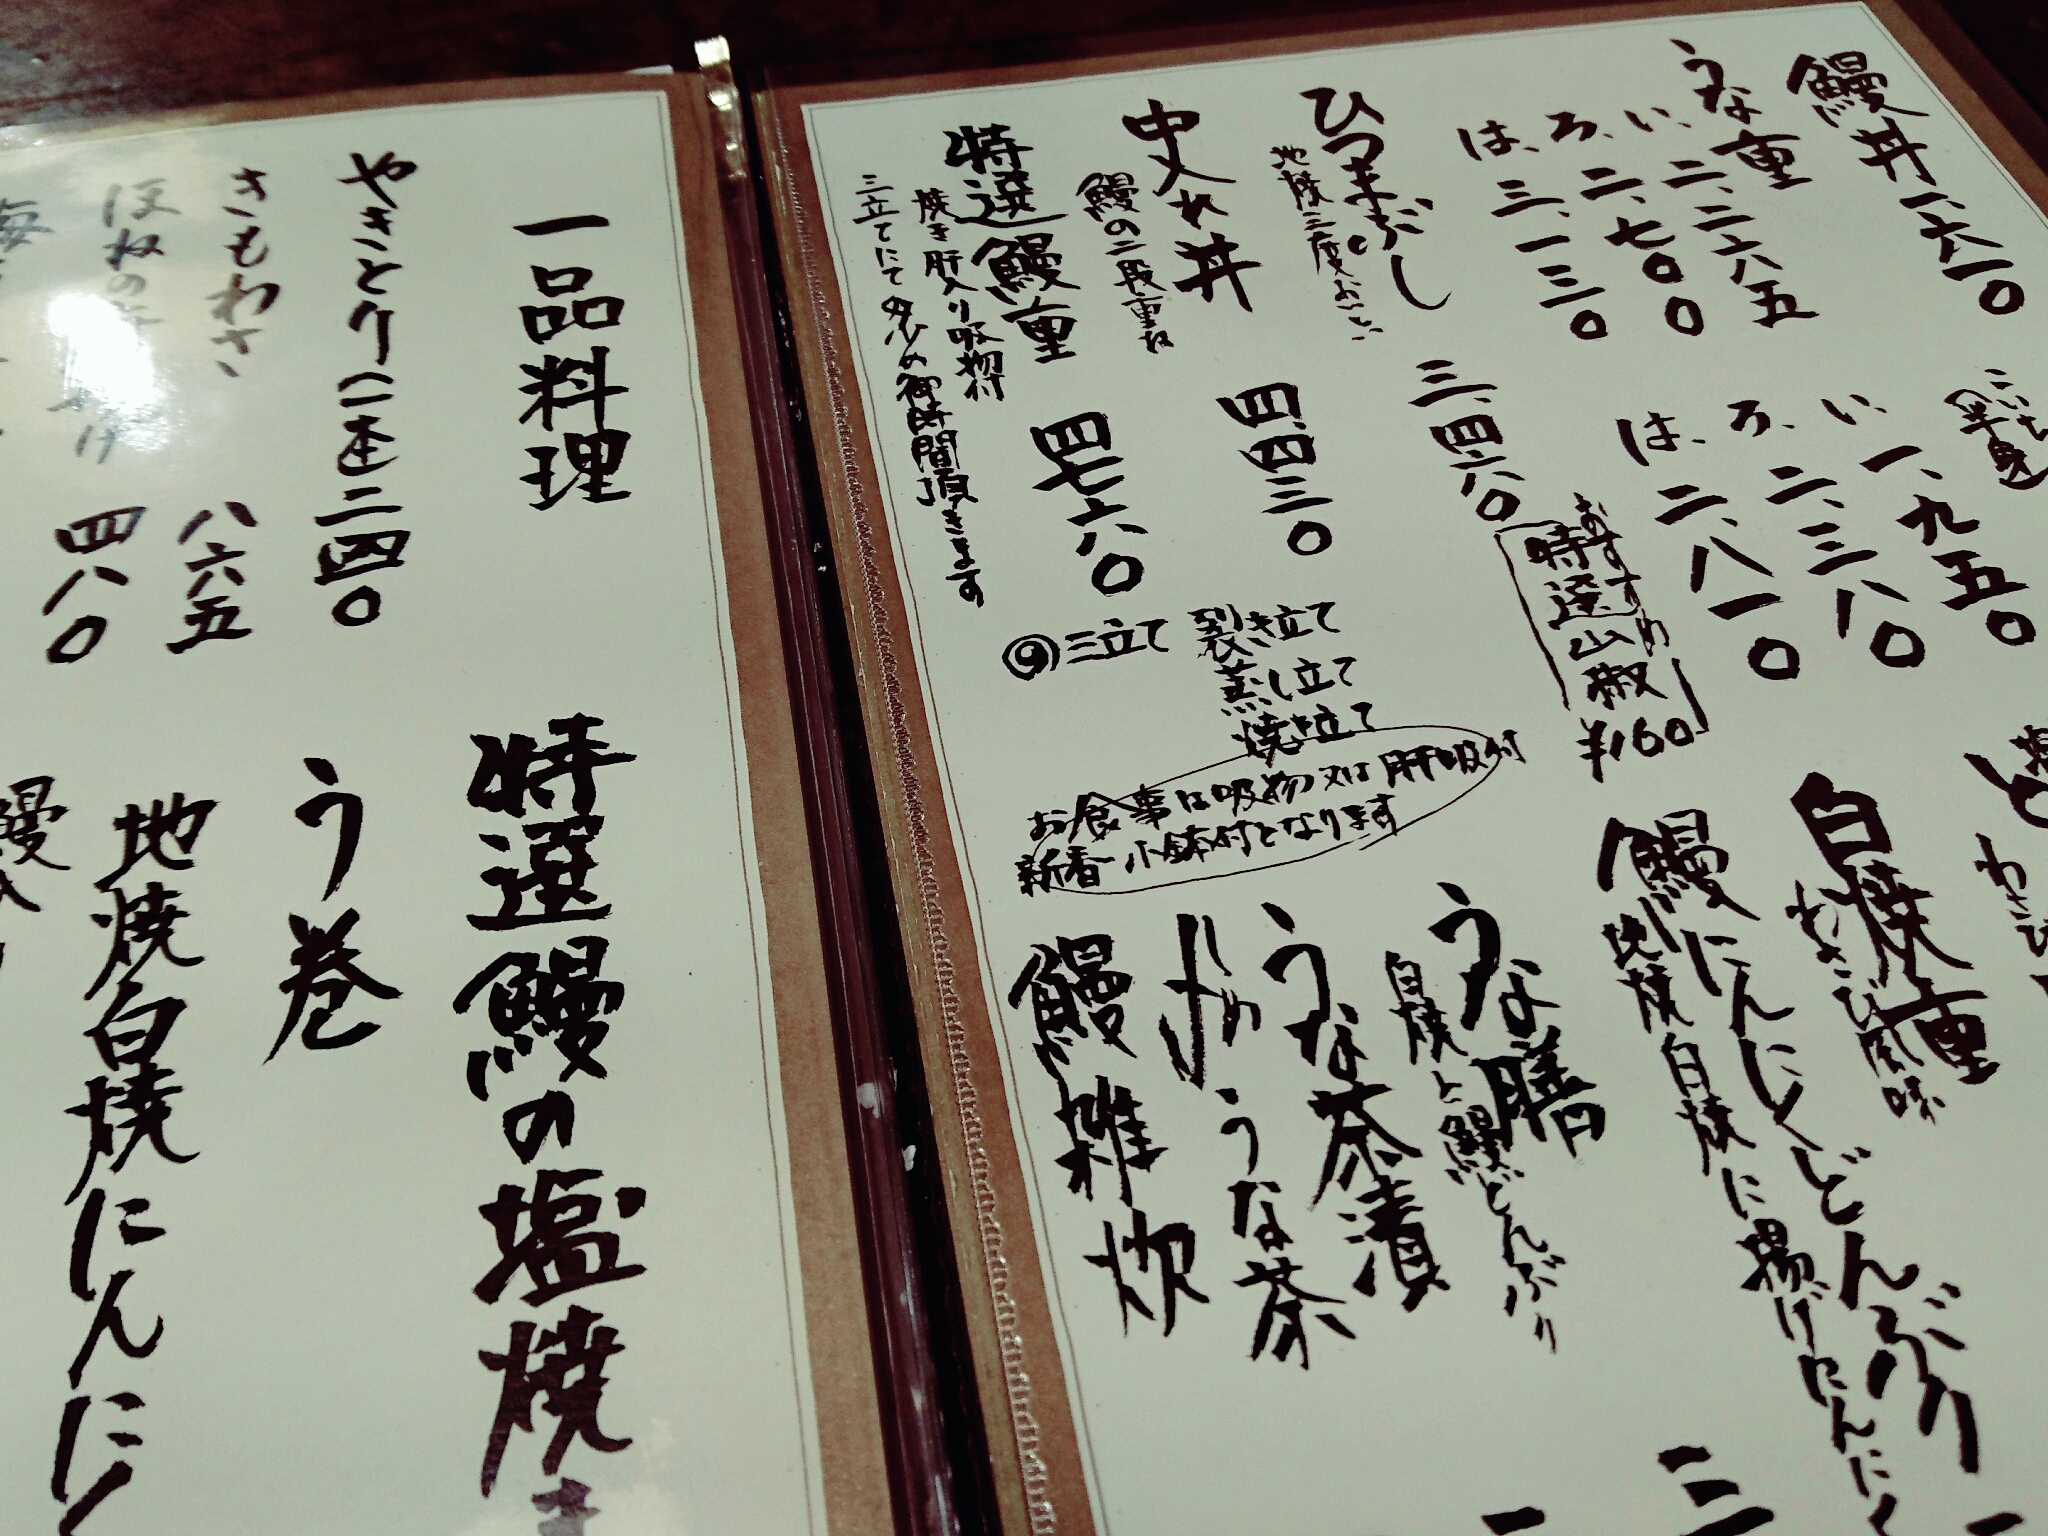 鰻丼 一、六一〇
うな重
い、二、二六五
ろ、二、七〇〇
は、三、一三〇
ひつまぶし 三、四六〇
中入れ丼 四、四三〇
鰻の二段重ね
特選鰻重 四七六〇
焼き肝入り吸物付
三立てにて
御時間頂きます
い、一、九五〇
ろ、二、三八〇
は、二、八一〇
おすすめ
特選山椒
¥160
三立て
裂き立て
蒸し立て
焼き立て
お食事は吸物又は肝吸付
新香 小鉢付となります
白焼重
わさび風味
鰻にんにくどんぶり
地焼白焼に揚げにんにく
うな膳
白焼と鰻どんぶり
うな茶漬
うな茶
鰻雑炊
一品料理
やきとり(二本) 二四〇
さもわさ 八六五
四八〇
特選鰻の塩焼き
う巻
地焼白焼にんにく